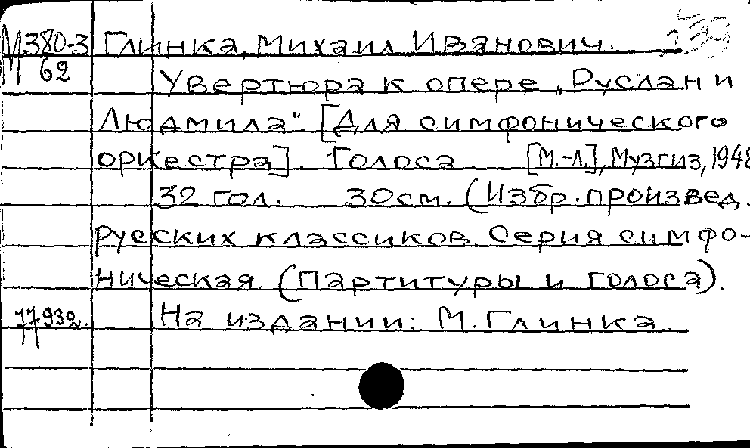 М380-3 Глинка, Михаил Иванович.
62 Увертюра к опере „Руслан и
Людмила". [Для симфонического
оркестра]. Голоса [М.-Л.], Музгиз, 1948
32 гол. 30см. (Избр. произвед.
русских классиков. Серия симфо-
ническая. (Партитуры и голоса).
На издании: М. Глинка.